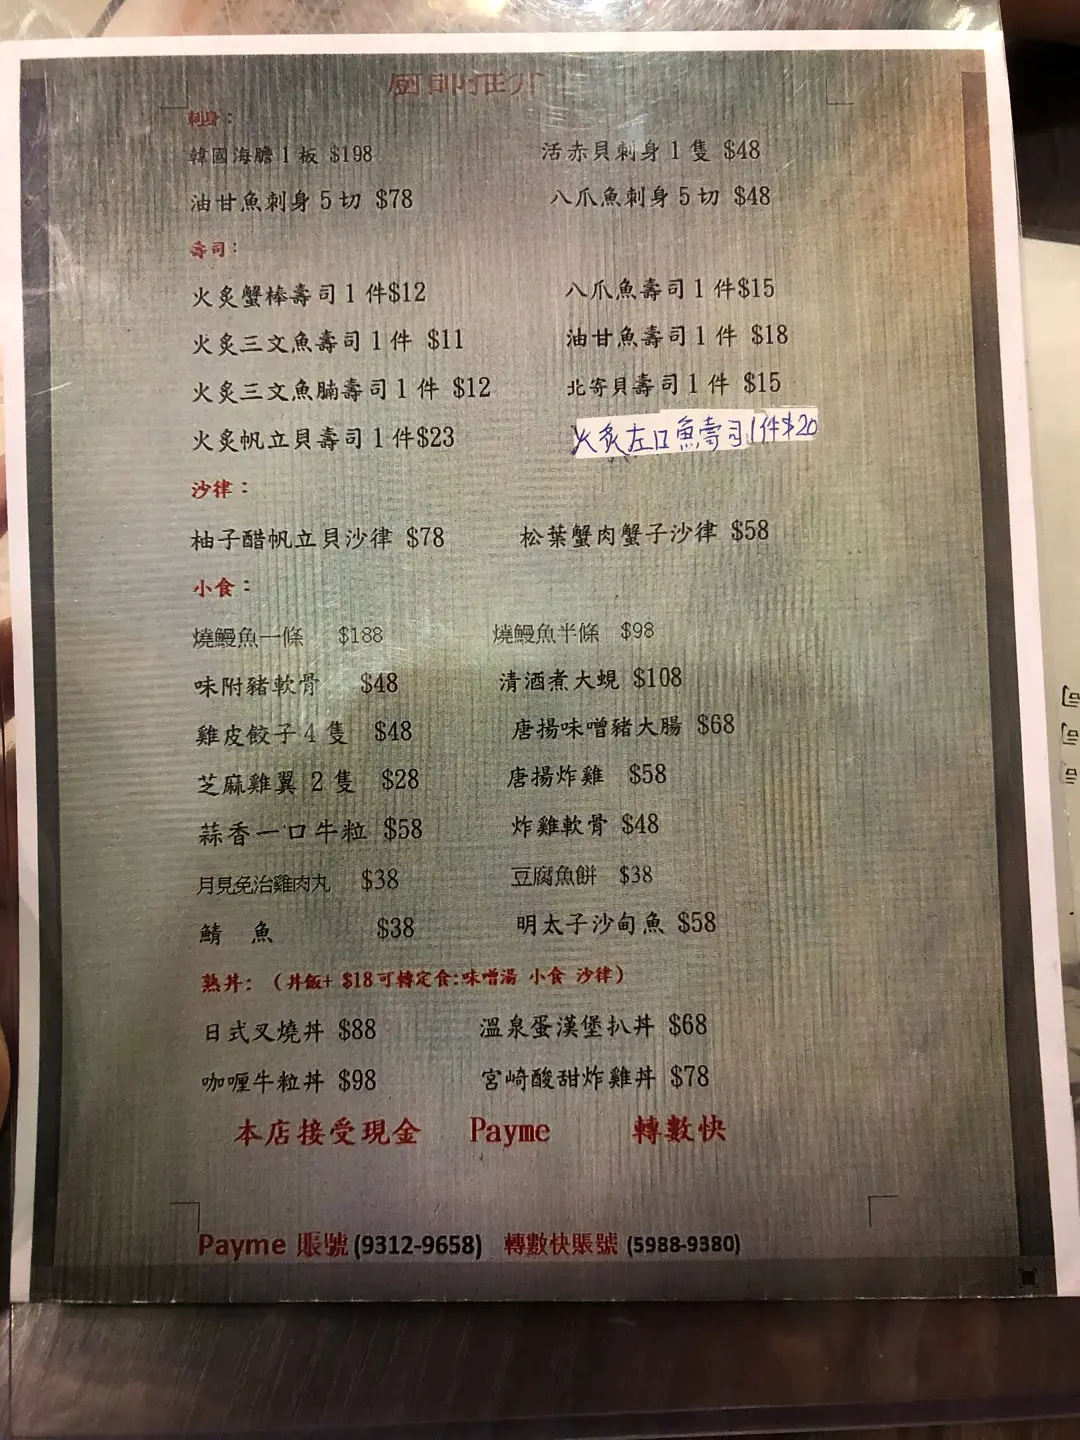 廚師推介
刺身：
韓國海膽 1 板 $198 活赤貝刺身 1 隻 $48
油甘魚刺身 5 切 $78 八爪魚刺身 5 切 $48
壽司：
火炙蟹棒壽司 1 件$12 八爪魚壽司 1 件$15
火炙三文魚壽司 1 件 $11 油甘魚壽司 1 件 $18
火炙三文魚腩壽司 1 件 $12 北寄貝壽司 1 件 $15
火炙帆立貝壽司 1 件$23 火炙左口魚壽司1件$20
沙律：
柚子醋帆立貝沙律 $78 松葉蟹肉蟹子沙律 $58
小食：
燒鰻魚一條 $188 燒鰻魚半條 $98
味附豬軟骨 $48 清酒煮大蜆 $108
雞皮餃子 4 隻 $48 唐揚味噌豬大腸 $68
芝麻雞翼 2 隻 $28 唐揚炸雞 $58
蒜香一口牛粒 $58 炸雞軟骨 $48
月見免治雞肉丸 $38 豆腐魚餅 $38
鯖 魚 $38 明太子沙甸魚 $58
熱丼：（丼飯+ $18 可轉定食:味噌湯 小食 沙律）
日式叉燒丼 $88 溫泉蛋漢堡扒丼 $68
咖喱牛粒丼 $98 宮崎酸甜炸雞丼 $78
本店接受現金 Payme 轉數快
Payme 賬號 (9312-9658) 轉數快賬號 (5988-9380)